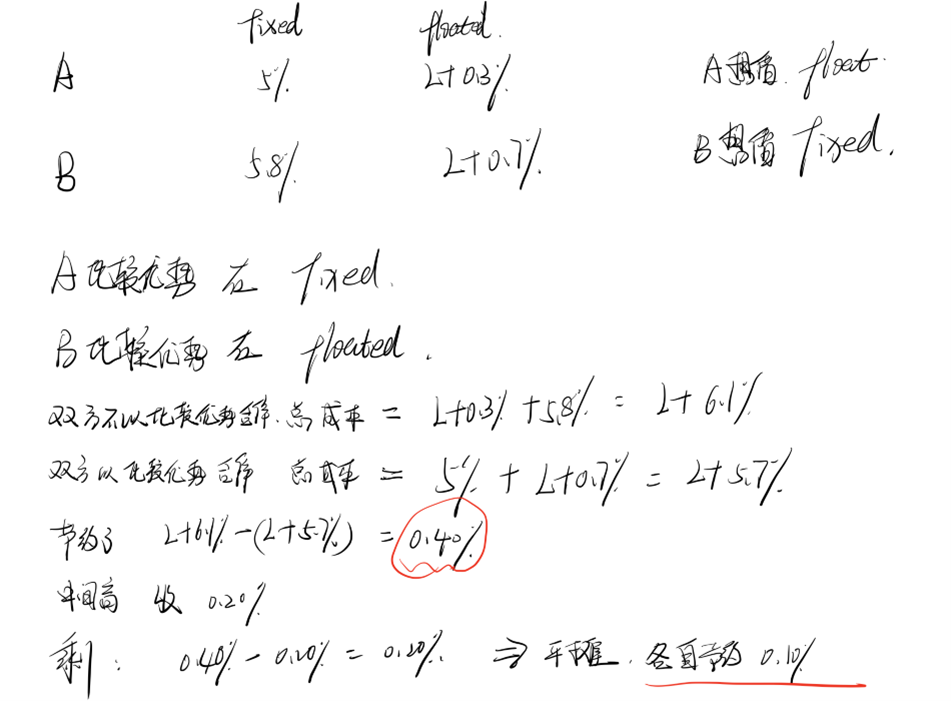 fixed floated.
A 5% L+0.3% A想借 float.
B 5.8% L+0.7% B想借 fixed.
A比较优势在 fixed.
B比较优势在 floated.
双方不以比较优势合作.总成本 = L+0.3% +5.8% = L+6.1%
双方以比较优势合作 总成本 = 5% + L+0.7% = L+5.7%
节约了 L+6.1%-(L+5.7%) = 0.40%
中间商 收 0.20%
剩: 0.40%-0.20% = 0.20%. ⇒ 平摊. 各自节约 0.10%